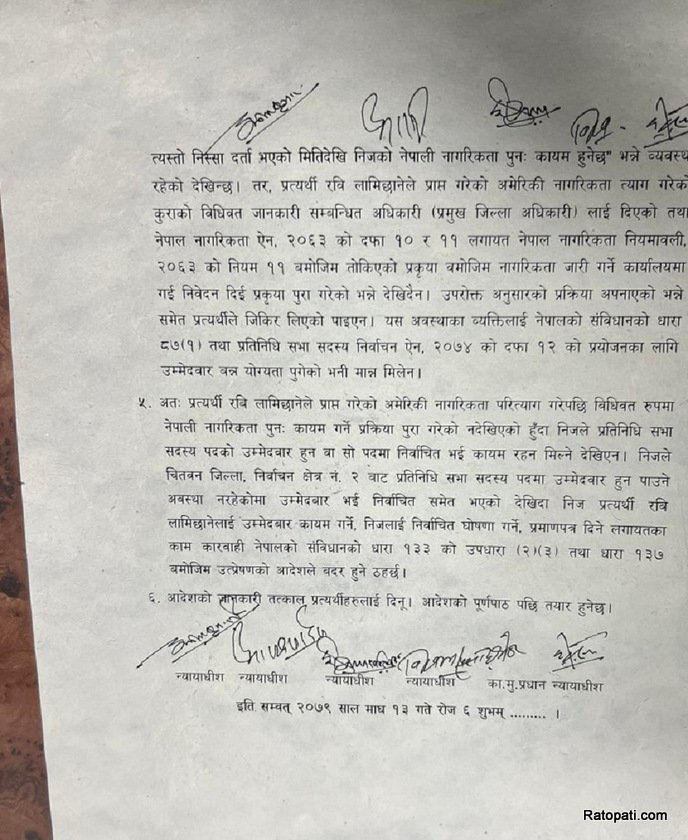 त्यस्तो निस्सा दर्ता भएको मितिदेखि निजको नेपाली नागरिकता पुनः कायम हुनेछ" भन्ने व्यवस्था
रहेको देखिन्छ। तर, प्रत्यर्थी रवि लामिछानेले प्राप्त गरेको अमेरिकी नागरिकता त्याग गरेको
कुराको विधिवत जानकारी सम्बन्धित अधिकारी (प्रमुख जिल्ला अधिकारी) लाई दिएको तथा
नेपाल नागरिकता ऐन, २०६३ को दफा १० र ११ लगायत नेपाल नागरिकता नियमावली,
२०६३ को नियम ११ बमोजिम तोकिएको प्रकृया बमोजिम नागरिकता जारी गर्ने कार्यालयमा
गई निवेदन दिई प्रकृया पुरा गरेको भन्ने देखिदैन। उपरोक्त अनुसारको प्रक्रिया अपनाएको भन्ने
समेत प्रत्यर्थीले जिकिर लिएको पाइएन। यस अवस्थाका व्यक्तिलाई नेपालको संविधानको धारा
८७(१) तथा प्रतिनिधि सभा सदस्य निर्वाचन ऐन, २०७४ को दफा १२ को प्रयोजनका लागि
उम्मेदवार बन्न योग्यता पुगेको भनी मान्न मिलेन।
५. अतः प्रत्यर्थी रवि लामिछानेले प्राप्त गरेको अमेरिकी नागरिकता परित्याग गरेपछि विधिवत रुपमा
नेपाली नागरिकता पुनः कायम गर्ने प्रक्रिया पुरा गरेको नदेखिएको हुँदा निजले प्रतिनिधि सभा
सदस्य पदको उम्मेदवार हुन वा सो पदमा निर्वाचित भई कायम रहन मिल्ने देखिएन। निजले
चितवन जिल्ला, निर्वाचन क्षेत्र नं. २ बाट प्रतिनिधि सभा सदस्य पदमा उम्मेदवार हुन पाउने
अवस्था नरहेकोमा उम्मेदबार भई निर्वाचित समेत भएको देखिदा निज प्रत्यर्थी रवि
लामिछानेलाई उम्मेदबार कायम गर्ने, निजलाई निर्वाचित घोषणा गर्ने, प्रमाणपत्र दिने लगायतका
काम कारवाही नेपालको संविधानको धारा १३३ को उपधारा (२)(३) तथा धारा १३७
बमोजिम उत्प्रेषणको आदेशले बदर हुने ठहर्छ।
६. आदेशको जानकारी तत्काल प्रत्यर्थीहरुलाई दिनू। आदेशको पूर्णपाठ पछि तयार हुनेछ।
न्यायाधीश न्यायाधीश न्यायाधीश न्यायाधीश का.मु.प्रधान न्यायाधीश
इति सम्वत् २०७९ साल माघ १३ गते रोज ६ शुभम् ......... ।
Ratopati.com